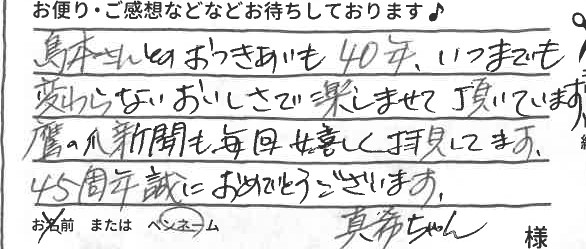 お便り・ご感想などなどお待ちしております♪
島本さんとのおつきあいも40年、いつまでも
変わらないおいしさで楽しませて頂いています。
鷹の爪新聞も毎回嬉しく拝見してます。
45周年誠におめでとうございます。
お名前 または ペンネーム 真希ちゃん 様